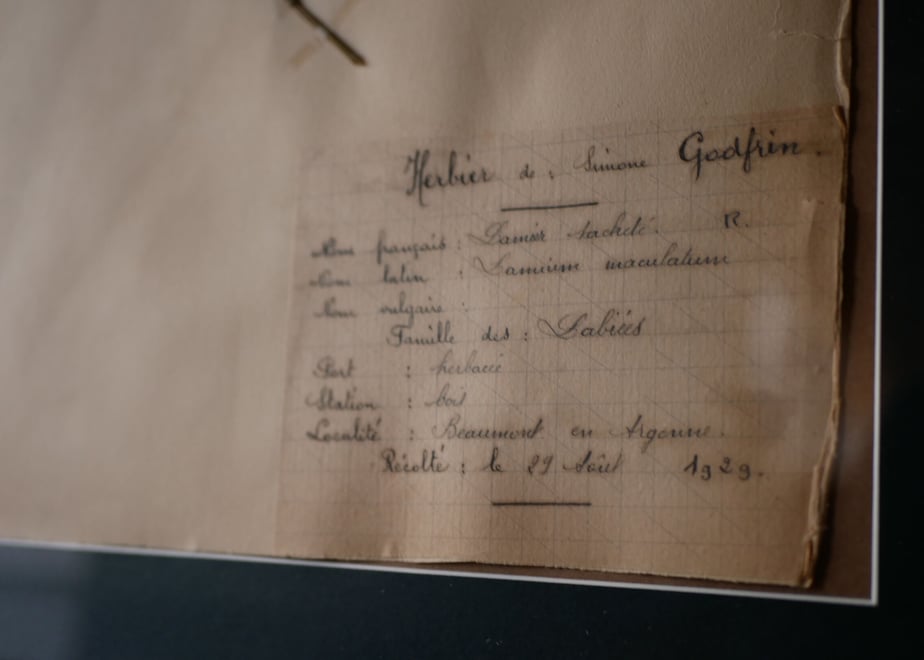 Herbier de : Simone Godfrin.
Nom français : Lamier tacheté. R.
Nom latin : Lamium maculatum
Nom vulgaire :
Famille des : Labiées
Port : herbacé
Station : bois
Localité : Beaumont en Argonne.
Récolté : le 29 Août 1929.